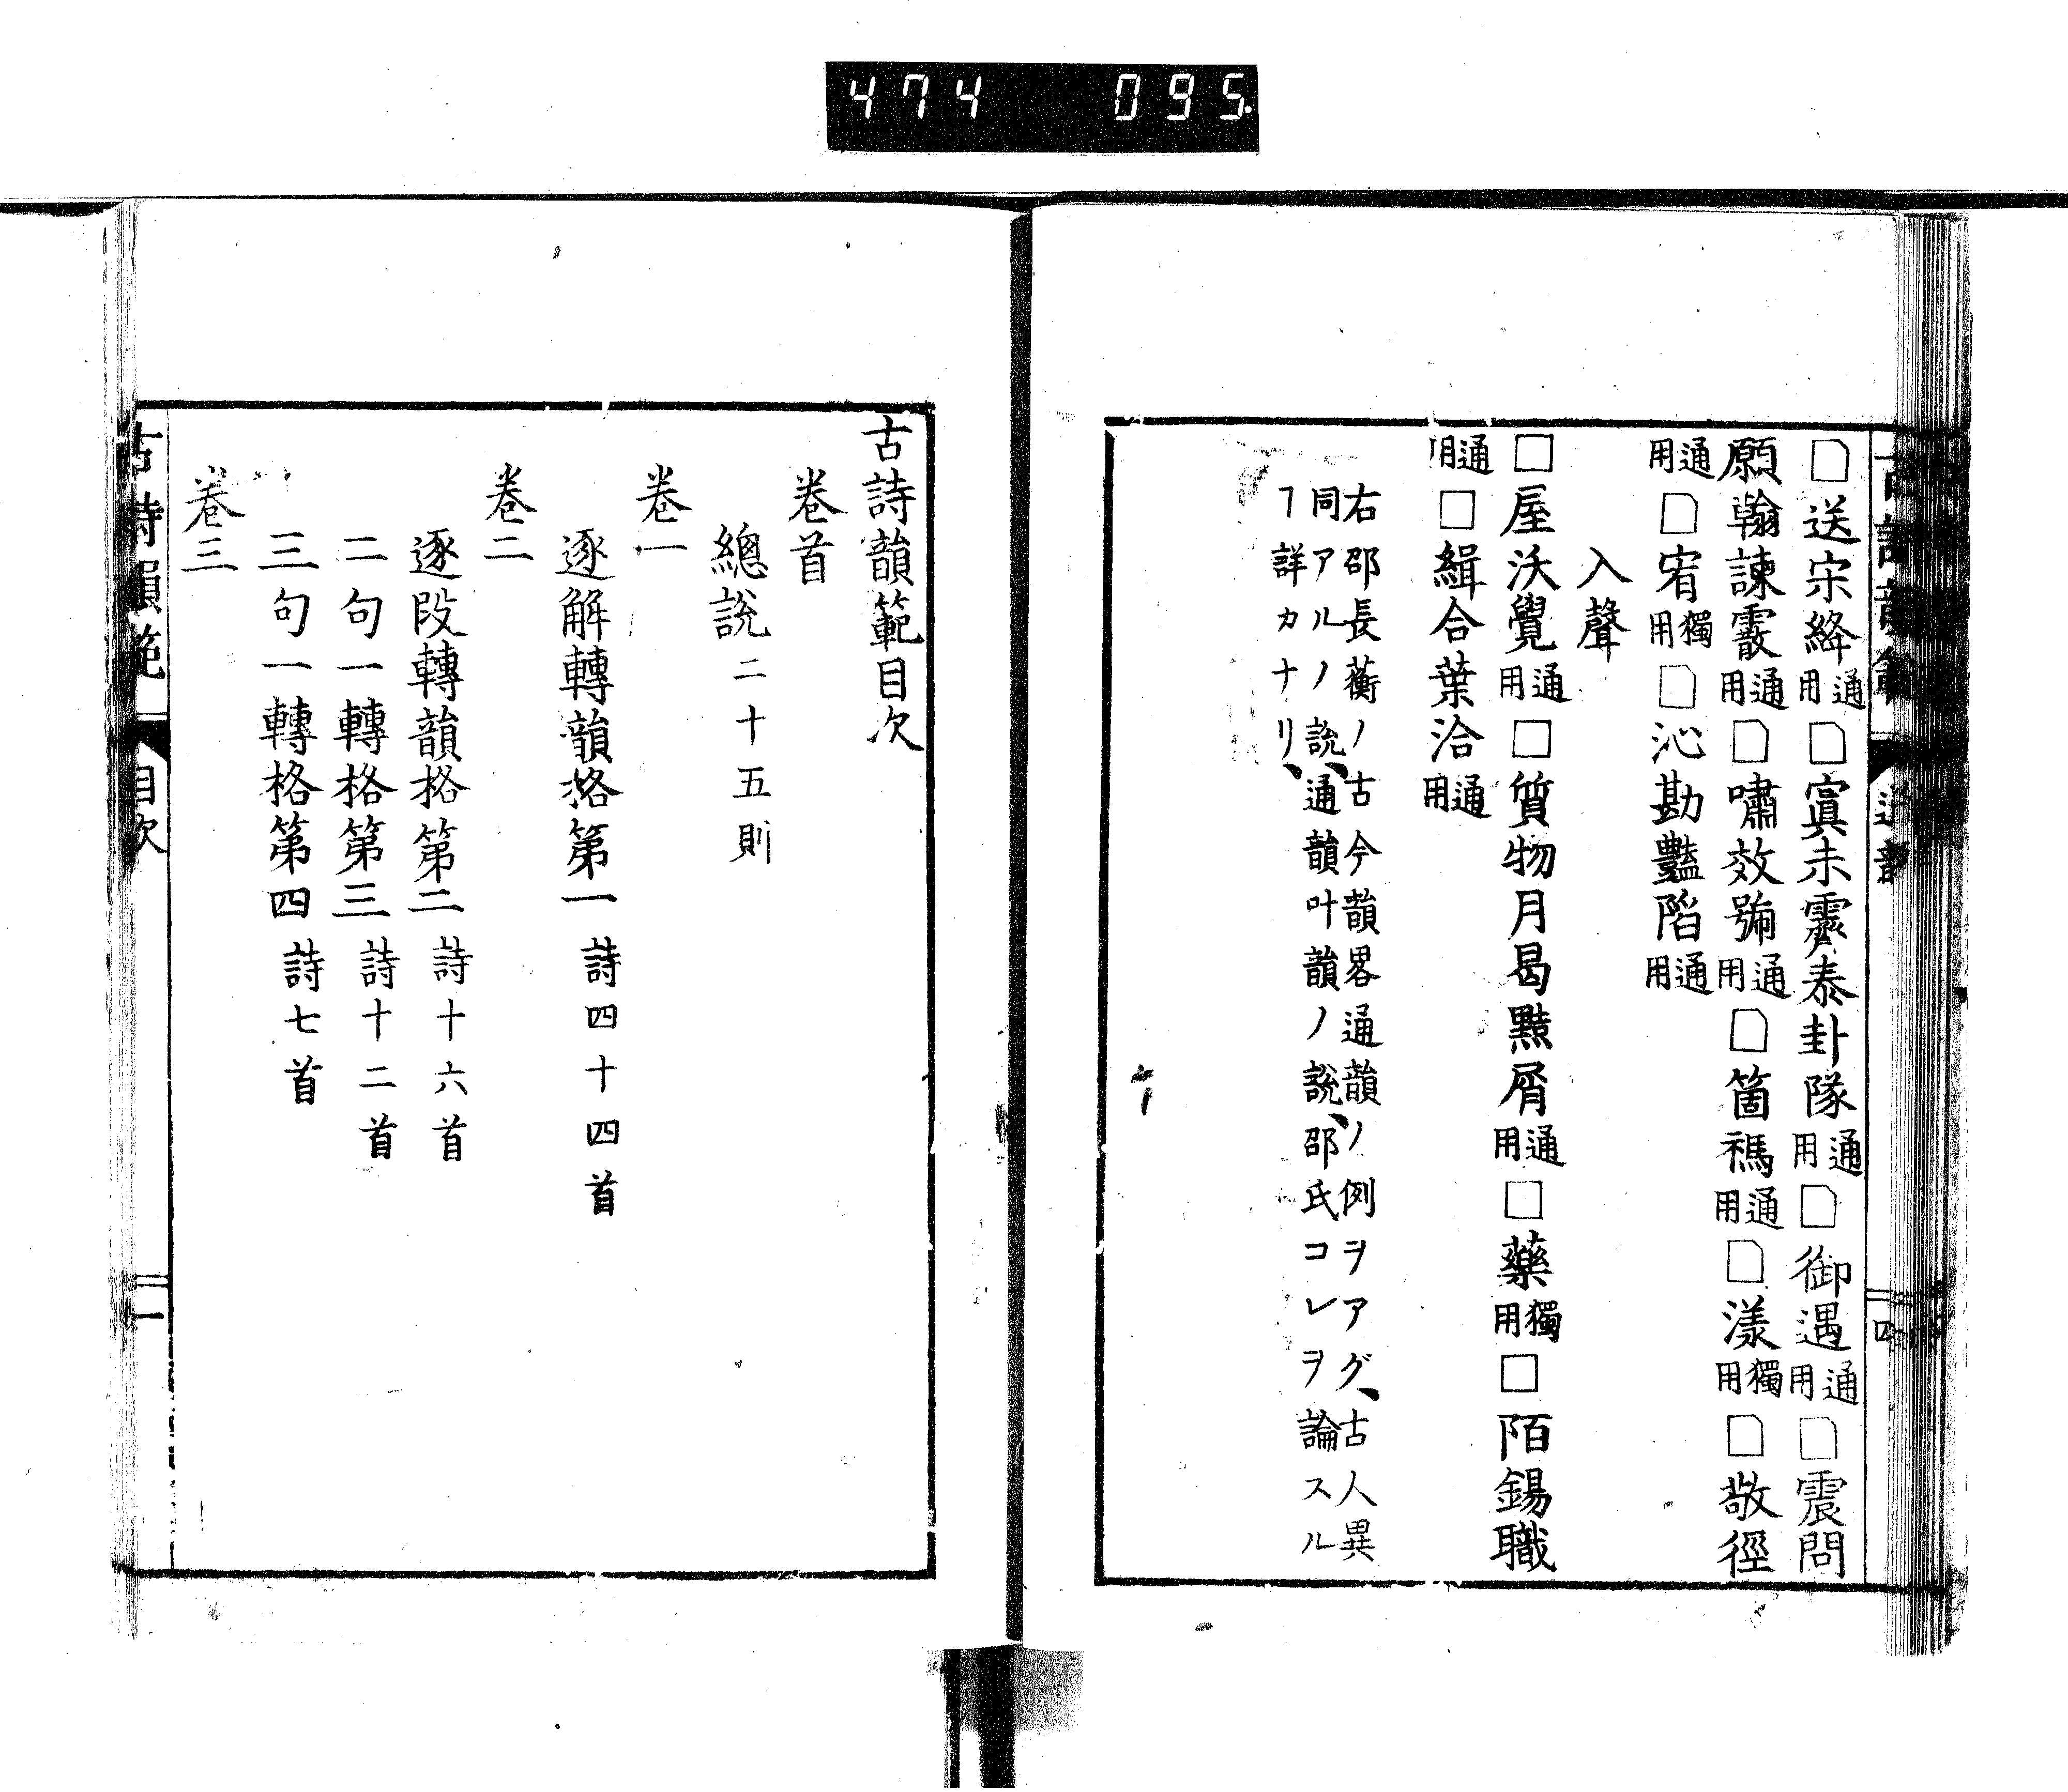 474 095.
□送宋絳通用□寘未霽泰卦隊通用□御遇通用□震問
願翰諫霰通用□嘯效號通用□箇禡通用□漾獨用□敬徑
通用□宥獨用□沁勘豔陷通用
入聲
□屋沃覺通用□質物月曷黠屑通用□藥獨用□陌錫職
通用□緝合葉洽通用
右邵長蘅ノ古今韻畧通韻ノ例ヲアグ、古人異
同アルノ說、通韻叶韻ノ說、邵氏コレヲ論スル
ヿ詳カナリ、
古詩韻範目次
卷首
總說二十五則
卷一
逐解轉韻格第一詩四十四首
卷二
逐段轉韻格第二詩十六首
二句一轉格第三詩十二首
三句一轉格第四詩七首
卷三
古詩韻範 目次 一